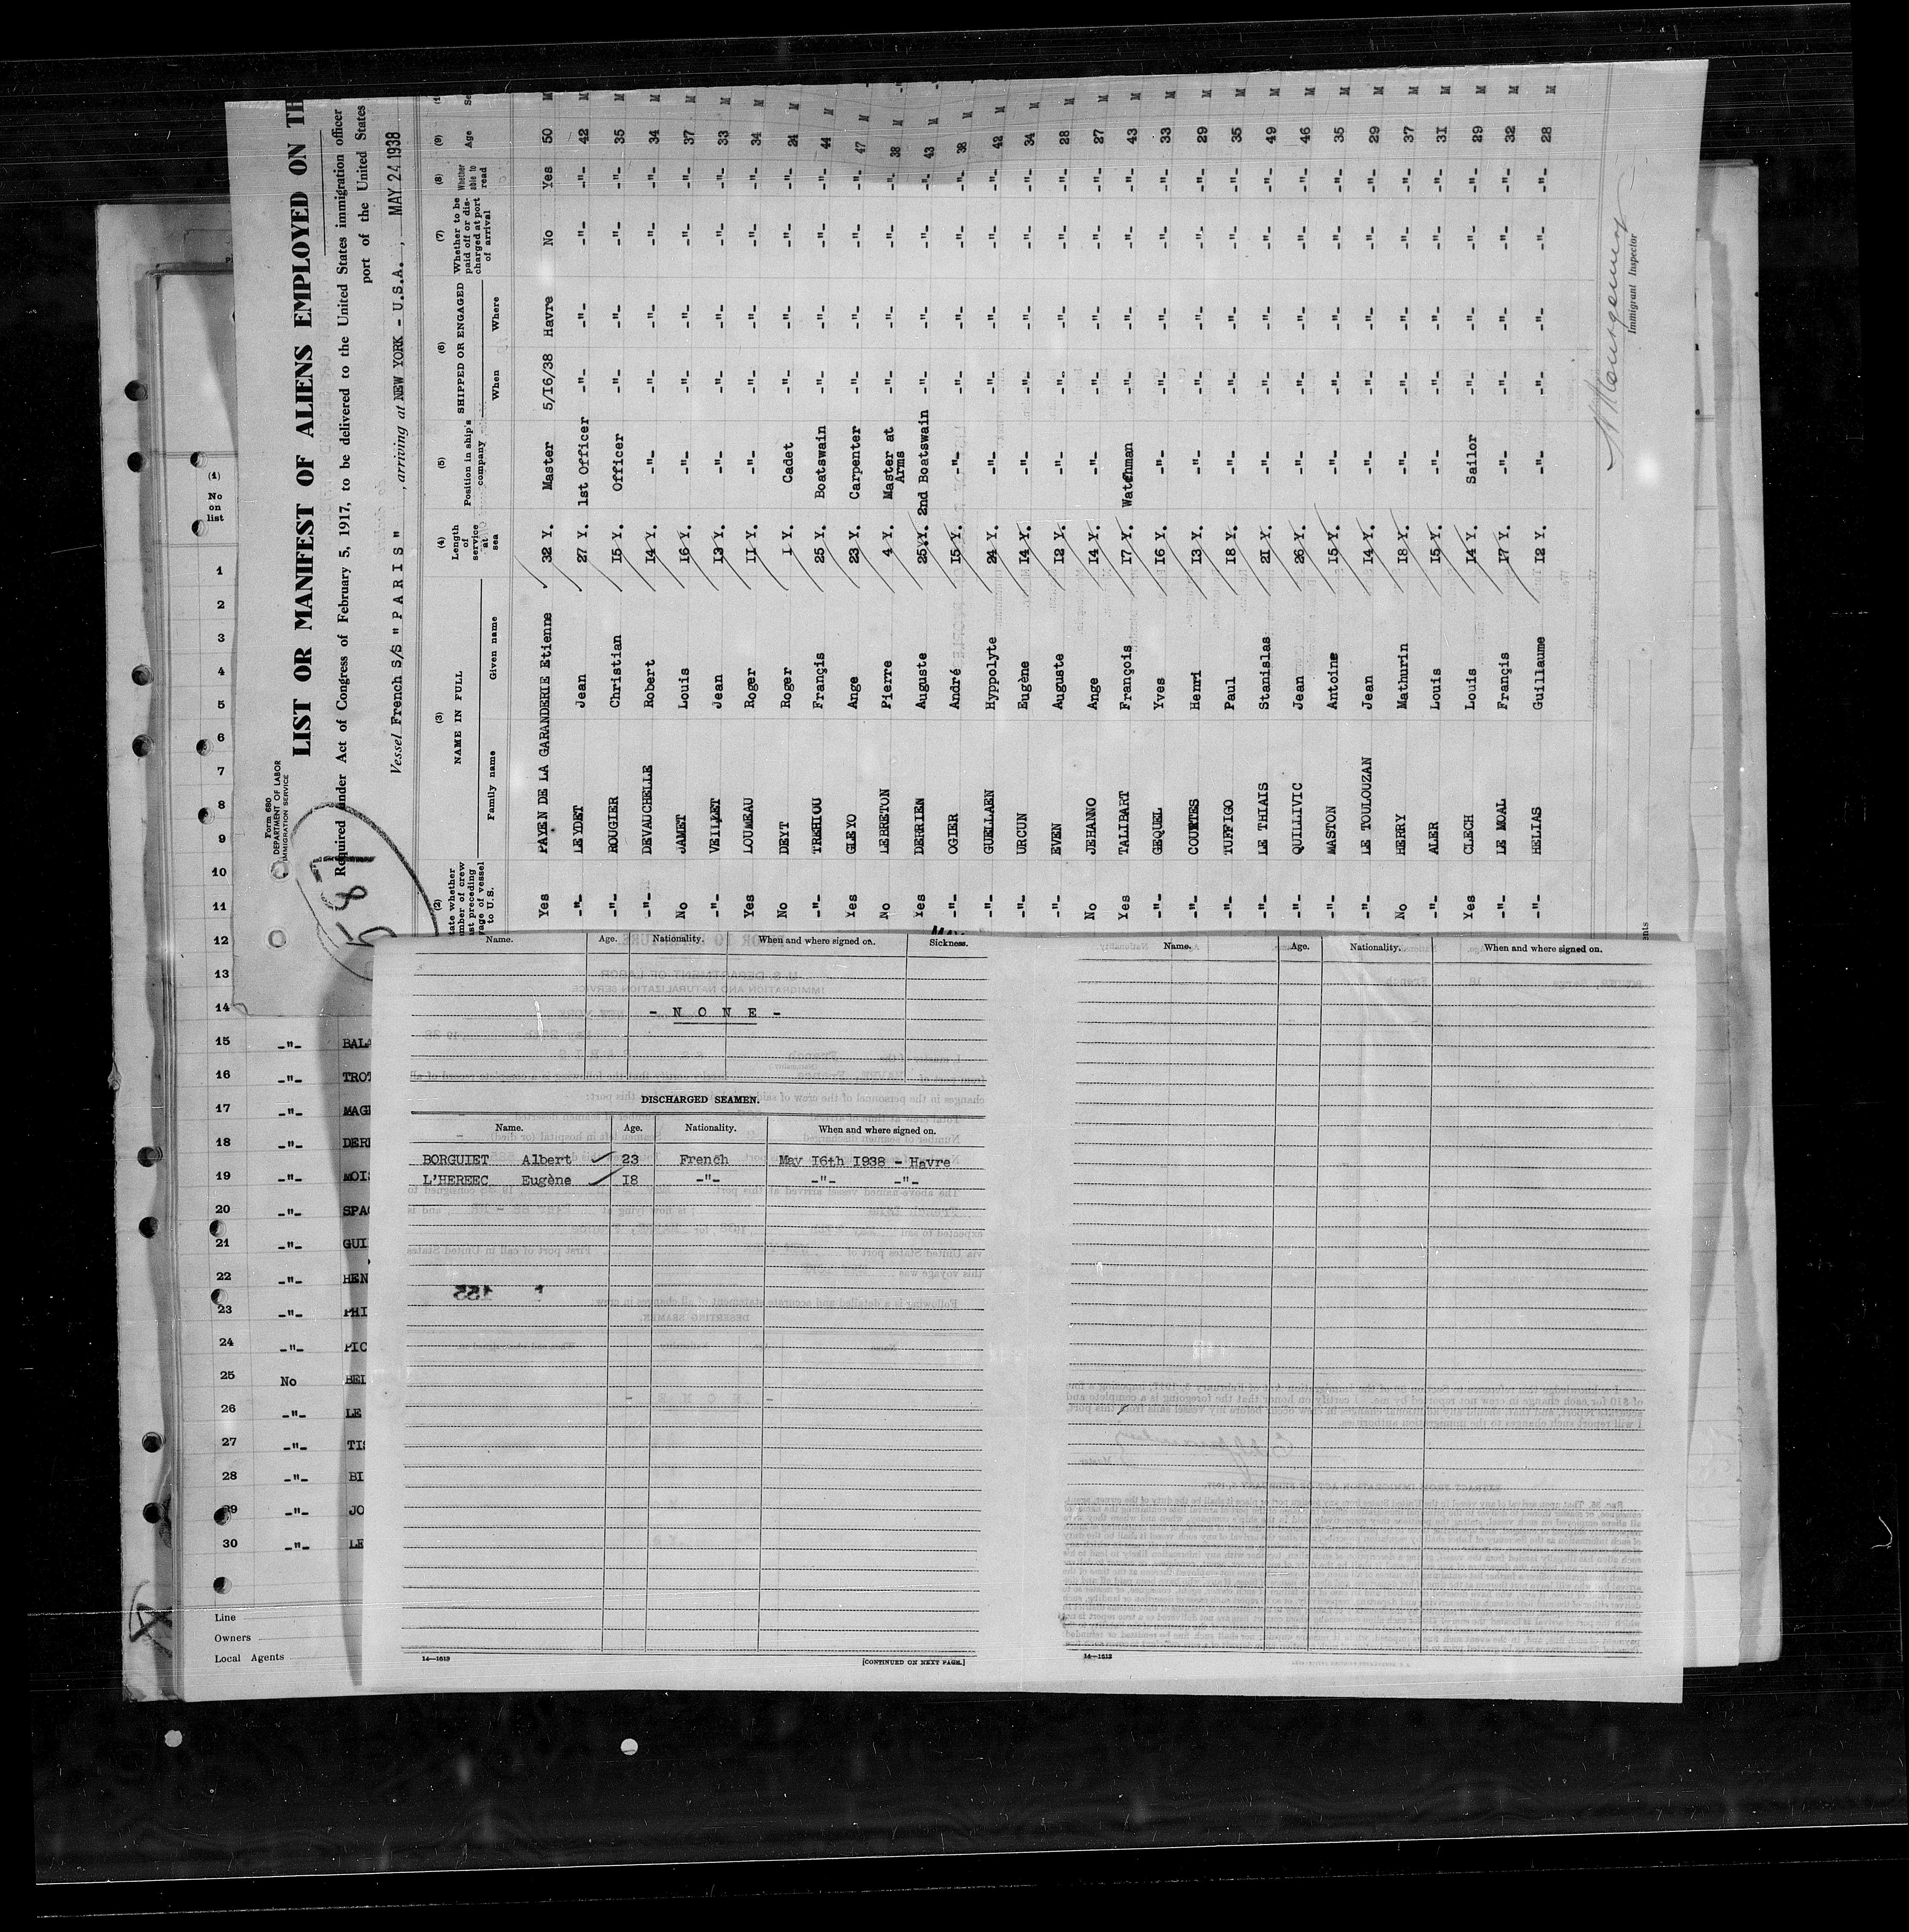 Form 680
DEPARTMENT OF LABOR
IMMIGRATION SERVICE
LIST OR MANIFEST OF ALIENS EMPLOYED ON TH
Required under Act of Congress of February 5, 1917, to be delivered to the United States immigration officer
port of the United States
Vessel French S/S " P A R I S " , arriving at NEW YORK - U.S.A. , MAY 24 1938
587
(2) (3) (4) (5) (6) (7) (8) (9)
tate whether mber of crew st preceding yage of vessel to U.S. NAME IN FULL Length of service at sea Position in ship's company SHIPPED OR ENGAGED Whether to be paid off or discharged at port of arrival Whether able to read Age Se
Family name Given name When Where
Yes PAYEN DE LA GARANDERIE Etienne 32 Y. Master 5/16/38 Havre No Yes 50 M
-"- LEYDET Jean 27 Y. 1st Officer -"- -"- -"- -"- 42 M
-"- ROUGIER Christian 15 Y. Officer -"- -"- -"- -"- 35 M
-"- DEVAUCHELLE Robert 14 Y. -"- -"- -"- -"- -"- 34 M
No JAMET Louis 16 Y. -"- -"- -"- -"- -"- 37 M
-"- VEILLET Jean 13 Y. -"- -"- -"- -"- -"- 33 M
Yes LOUMEAU Roger 11 Y. -"- -"- -"- -"- -"- 34 M
No DEYT Roger 1 Y. Cadet -"- -"- -"- -"- 24 M
-"- TREHIOU Françis 25 Y. Boatswain -"- -"- -"- -"- 44 M
Yes GLEYO Auge 23 Y. Carpenter -"- -"- -"- -"- 47 M
No LEBRETON Pierre 4 Y. Master at Arms -"- -"- -"- -"- 38 M
Yes DERRIEN Auguste 25 Y. 2nd Boatswain -"- -"- -"- -"- 43 M
-"- OGIER André 15 Y. -"- -"- -"- -"- -"- 38 M
-"- GUELLAEN Hyppolyte 24 Y. -"- -"- -"- -"- -"- 42 M
-"- URCUN Eugène 14 Y. -"- -"- -"- -"- -"- 34 M
-"- EVEN Auguste 12 Y. -"- -"- -"- -"- -"- 28 M
No JEHANNO Ange 14 Y. -"- -"- -"- -"- -"- 27 M
Yes TALIBART François 17 Y. Watchman -"- -"- -"- -"- 43 M
-"- GEQUEL Yves 16 Y. -"- -"- -"- -"- -"- 33 M
-"- COURTES Henri 13 Y. -"- -"- -"- -"- -"- 29 M
-"- TUFFIGO Paul 18 Y. -"- -"- -"- -"- -"- 35 M
-"- LE THIAIS Stanislas 21 Y. -"- -"- -"- -"- -"- 49 M
-"- QUILLIVIC Jean 26 Y. -"- -"- -"- -"- -"- 46 M
-"- MASTON Antoine 15 Y. -"- -"- -"- -"- -"- 35 M
-"- LE TOULOUZAN Jean 14 Y. -"- -"- -"- -"- -"- 29 M
No HERRY Mathurin 18 Y. -"- -"- -"- -"- -"- 37 M
-"- ALER Louis 15 Y. -"- -"- -"- -"- -"- 31 M
Yes CLECH Louis 14 Y. Sailor -"- -"- -"- -"- 29 M
-"- LE MOAL Françis 17 Y. -"- -"- -"- -"- -"- 32 M
-"- HELIAS Guillaume 12 Y. -"- -"- -"- -"- -"- 28 M
Immigrant Inspector
(1)
No on list
1
2
3
4
5
6
7
8
9
10
11
12
13
14
15 -"- BALA
16 -"- TROT
17 -"- MAGE
18 -"- DERR
19 -"- MOIS
20 -"- SPAG
21 -"- GUI
22 -"- HEN
23 -"- PHI
24 -"- PIC
25 No BEL
26 -"- LE
27 -"- TIS
28 -"- BI
29 -"- JO
30 -"- LE
Line
Owners
Local Agents
Name. Age. Nationality. When and where signed on. Sickness.
- N O N E -
DISCHARGED SEAMEN.
Name. Age. Nationality. When and where signed on.
BORGUIET Albert 23 French May 16th 1938 - Havre
L'HEREEC Eugène 18 -"- -"- -"-
14—1613 [CONTINUED ON NEXT PAGE.]
Name. Age. Nationality. When and where signed on.
14—1613